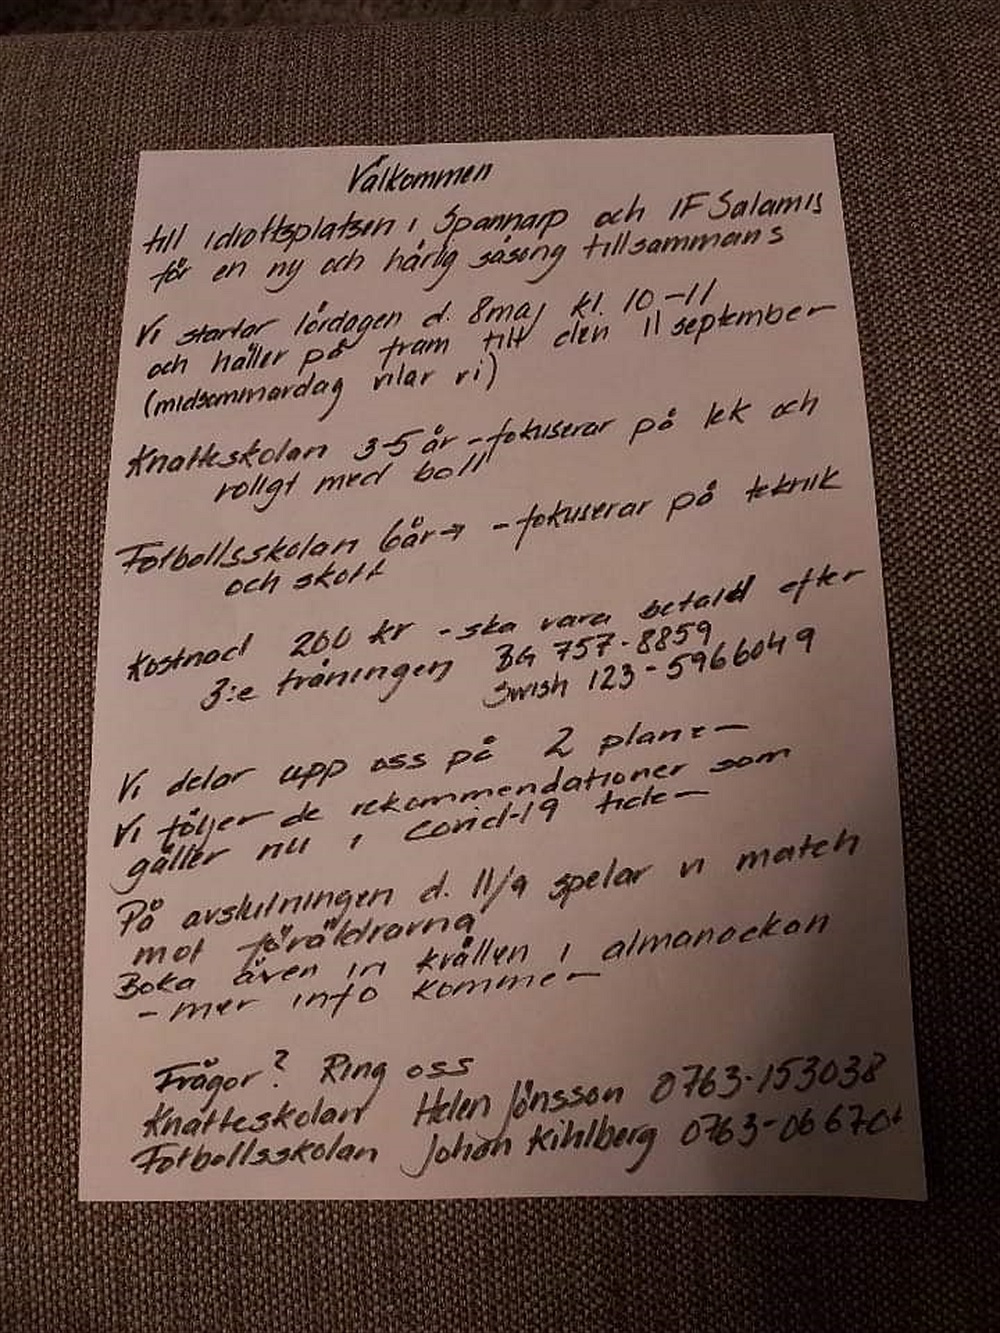 Välkommen
till idrottsplatsen i Spannarp och IF Salamis
för en ny och härlig säsong tillsammans
Vi startar lördagen d. 8 maj kl. 10-11
och håller på fram till den 11 september
(midsommardag vilar vi)
Knatteskolan 3-5 år - fokuserar på lek och
roligt med boll
Fotbollsskolan 6år→ - fokuserar på teknik
och skott
Kostnad 200 kr - ska vara betald efter
3:e träningen BG 757-8859
Swish 123-5966049
Vi delar upp oss på 2 planer
Vi följer de rekommendationer som
gäller nu i Covid-19 tider
På avslutningen d. 11/9 spelar vi match
mot föräldrarna
Boka även in kvällen i almanackan
- mer info kommer
Frågor? Ring oss
Knatteskolan Helen Jönsson 0763-153038
Fotbollsskolan Johan Kihlberg 0763-066706